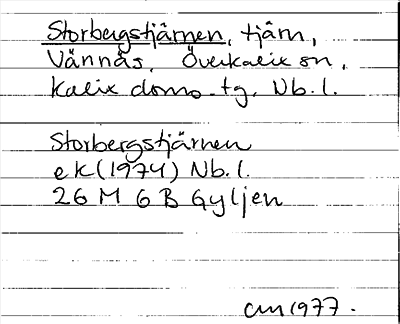 Storbergstjärnen, tjärn,
Vännäs, Överkalix sn,
Kalix doms.tg, Nb.l.
Storbergstjärnen
ek (1974) Nb.l.
26 M 6 B Gyljen
CM 1977.